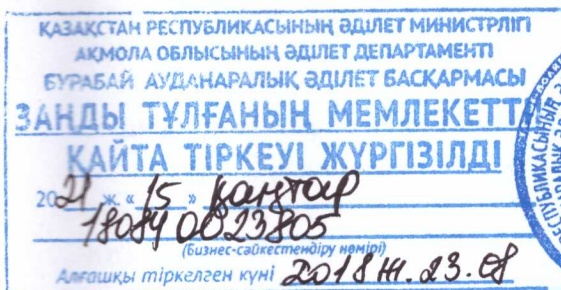 ҚАЗАҚСТАН РЕСПУБЛИКАСЫНЫҢ ӘДІЛЕТ МИНИСТРЛІГІ
АҚМОЛА ОБЛЫСЫНЫҢ ӘДІЛЕТ ДЕПАРТАМЕНТІ
БУРАБАЙ АУДАНАРАЛЫҚ ӘДІЛЕТ БАСҚАРМАСЫ
ЗАҢДЫ ТҰЛҒАНЫҢ МЕМЛЕКЕТТ
ҚАЙТА ТІРКЕУІ ЖҮРГІЗІЛДІ
2021 ж. « 15 » қаңтар
180840023805
(Бизнес-сәйкестендіру нөмірі)
Алғашқы тіркелген күні 2018 ж. 23.08